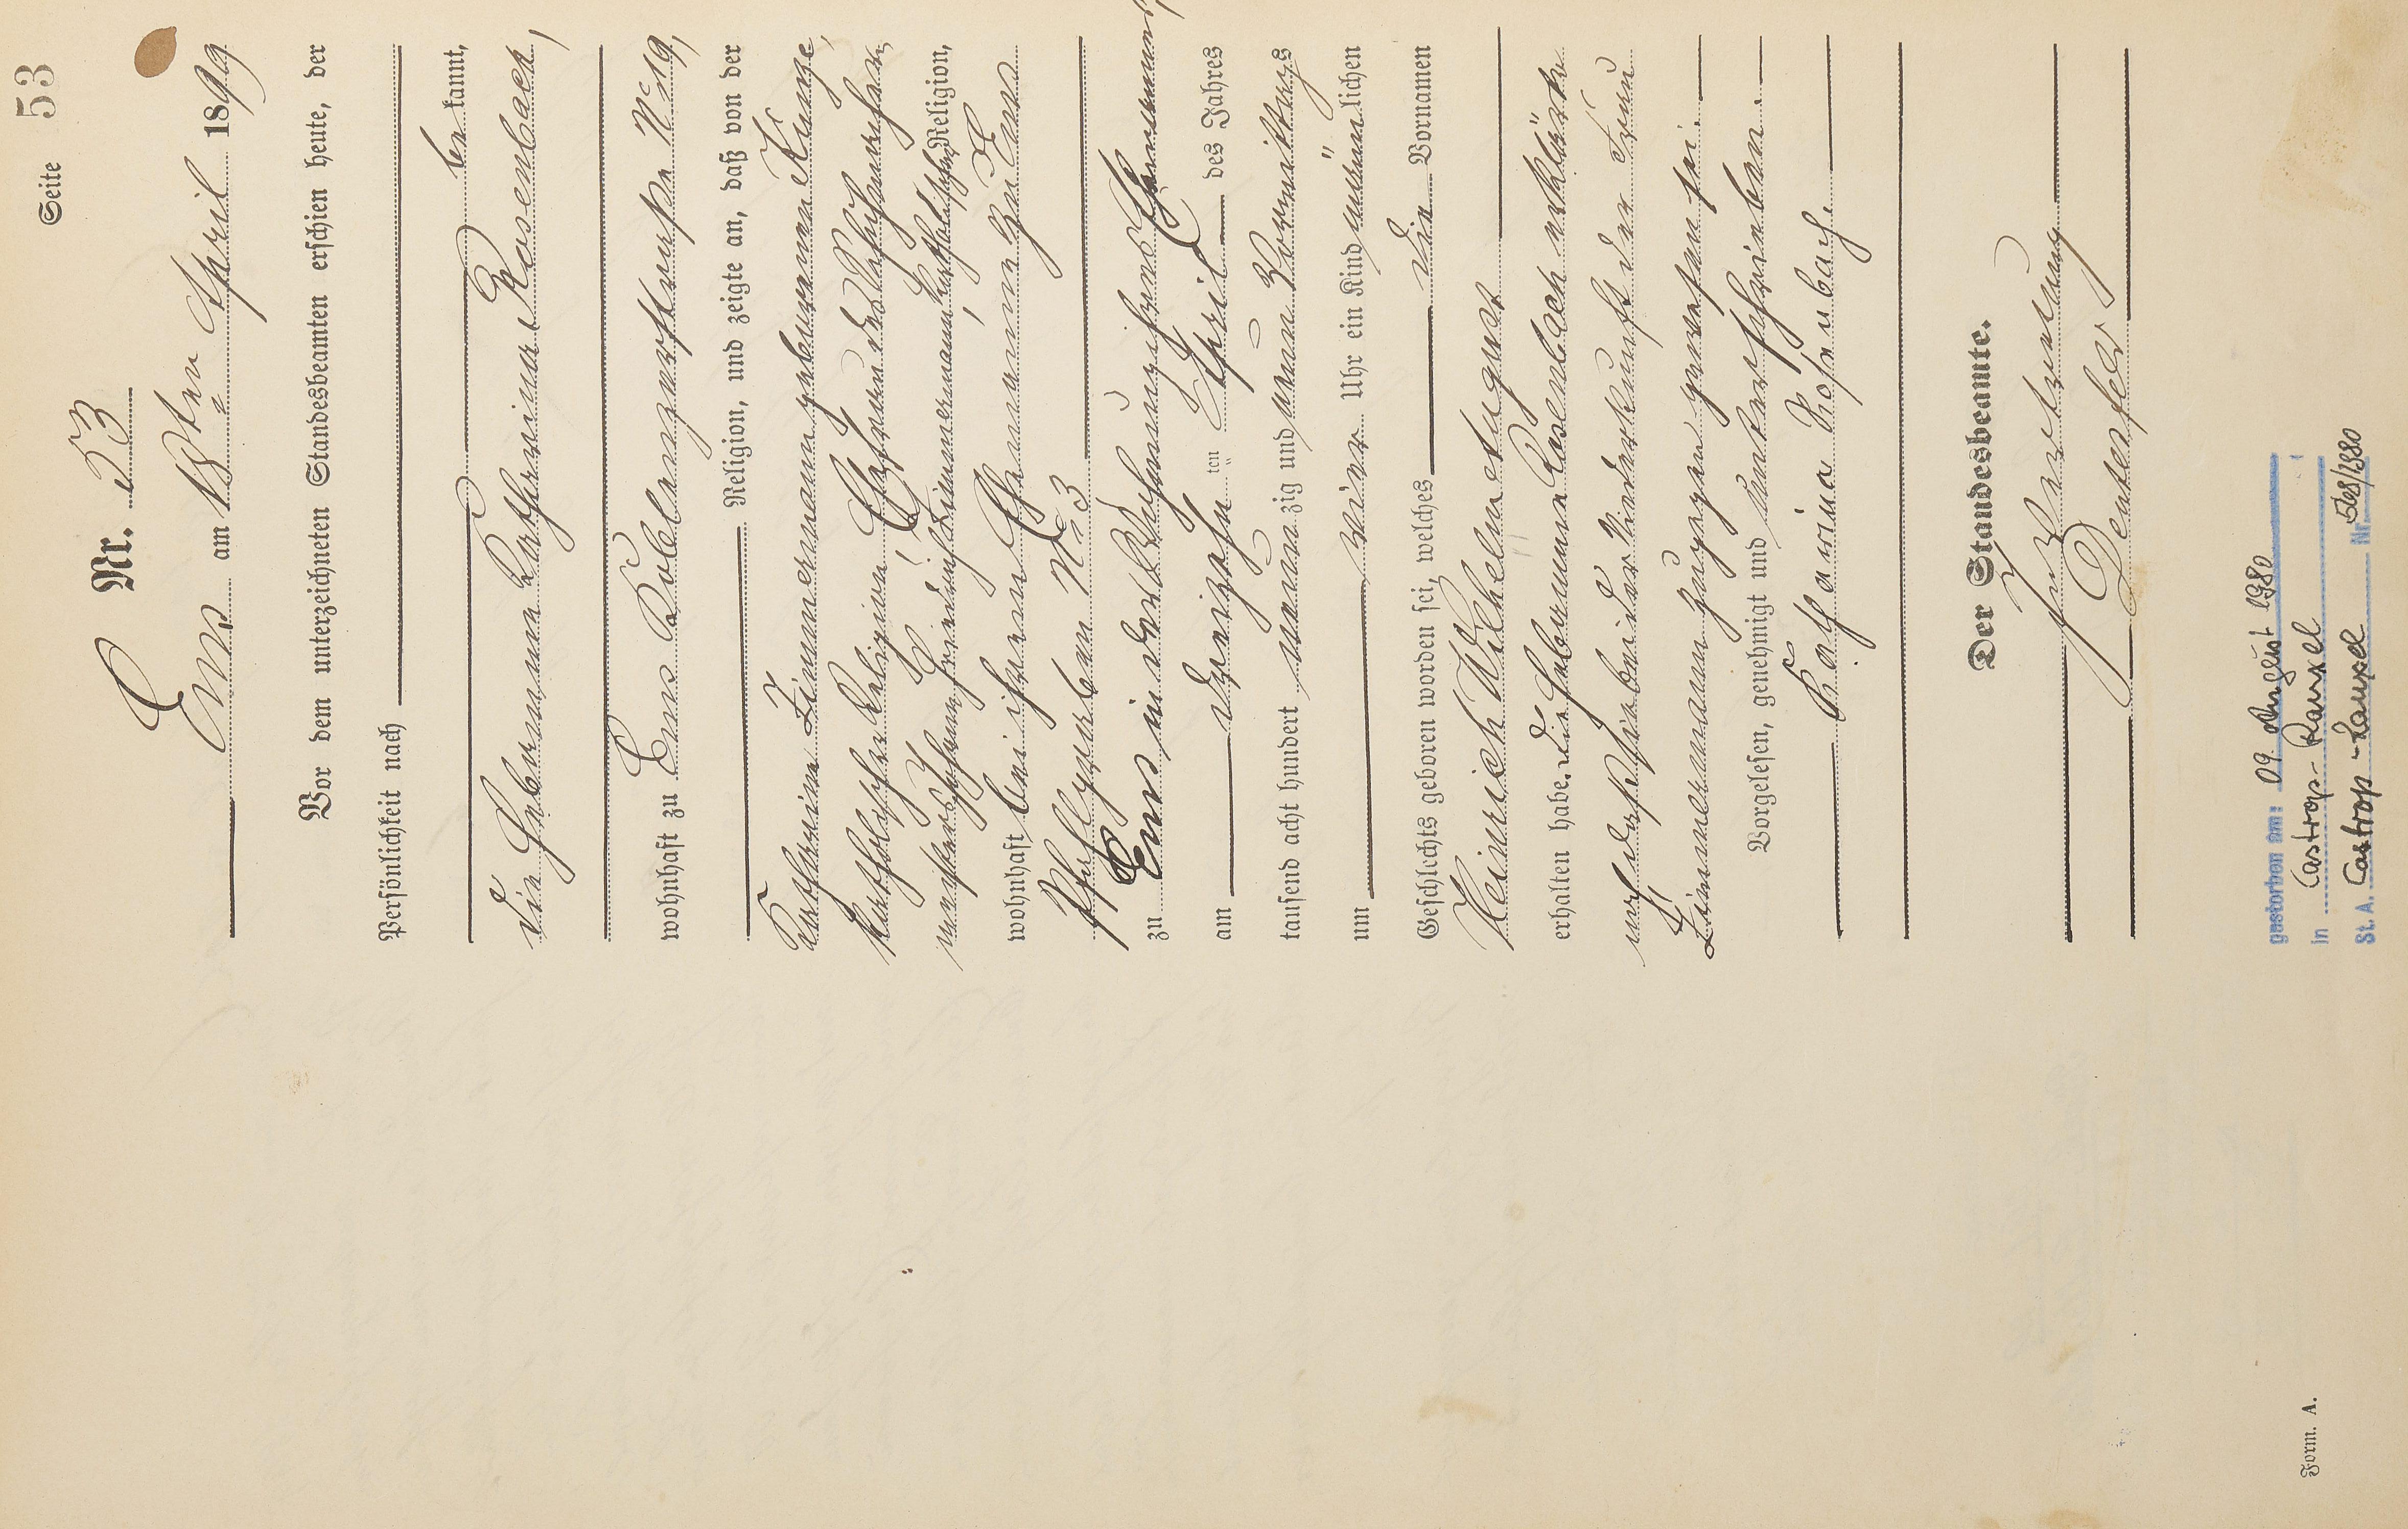 Seite 53
Nr. 53
Ems am 18ten April 1899
Vor dem unterzeichneten Standesbeamten erschien heute, der
Persönlichkeit nach
bekannt,
die Hebamme Katharina Rosenbach,
wohnhaft zu Ems Koblenzerstraße No 19,
Religion, und zeigte an, daß von der
Katharina Zimmermann geborenen Kunze,
katholischer Religion, Ehefrau des
Zimmermann, katholischer Religion,
wohnhaft bei ihrem Ehemanne zu Ems
Pfahlgraben No 3
zu Ems in der Wohnung ihres Ehemannes,
am dreizehnten April des Jahres
tausend acht hundert neunzig und neun Vormittags
um vier Uhr ein Kind männlichen
Geschlechts geboren worden sei, welches die Vornamen
Heinrich Wilhelm August
erhalten habe. Die Hebamme Rosenbach erklärte
daß sie bei der Niederkunft der Frau
Zimmermann zugegen gewesen sei.
Vorgelesen, genehmigt und unterschrieben.
Katharina Rosenbach.
Der Standesbeamte.
In Vertretung
gestorben am: 09. August 1980
in Castrop-Rauxel
St. A. Castrop-Rauxel Nr. 568/1980
Form. A.